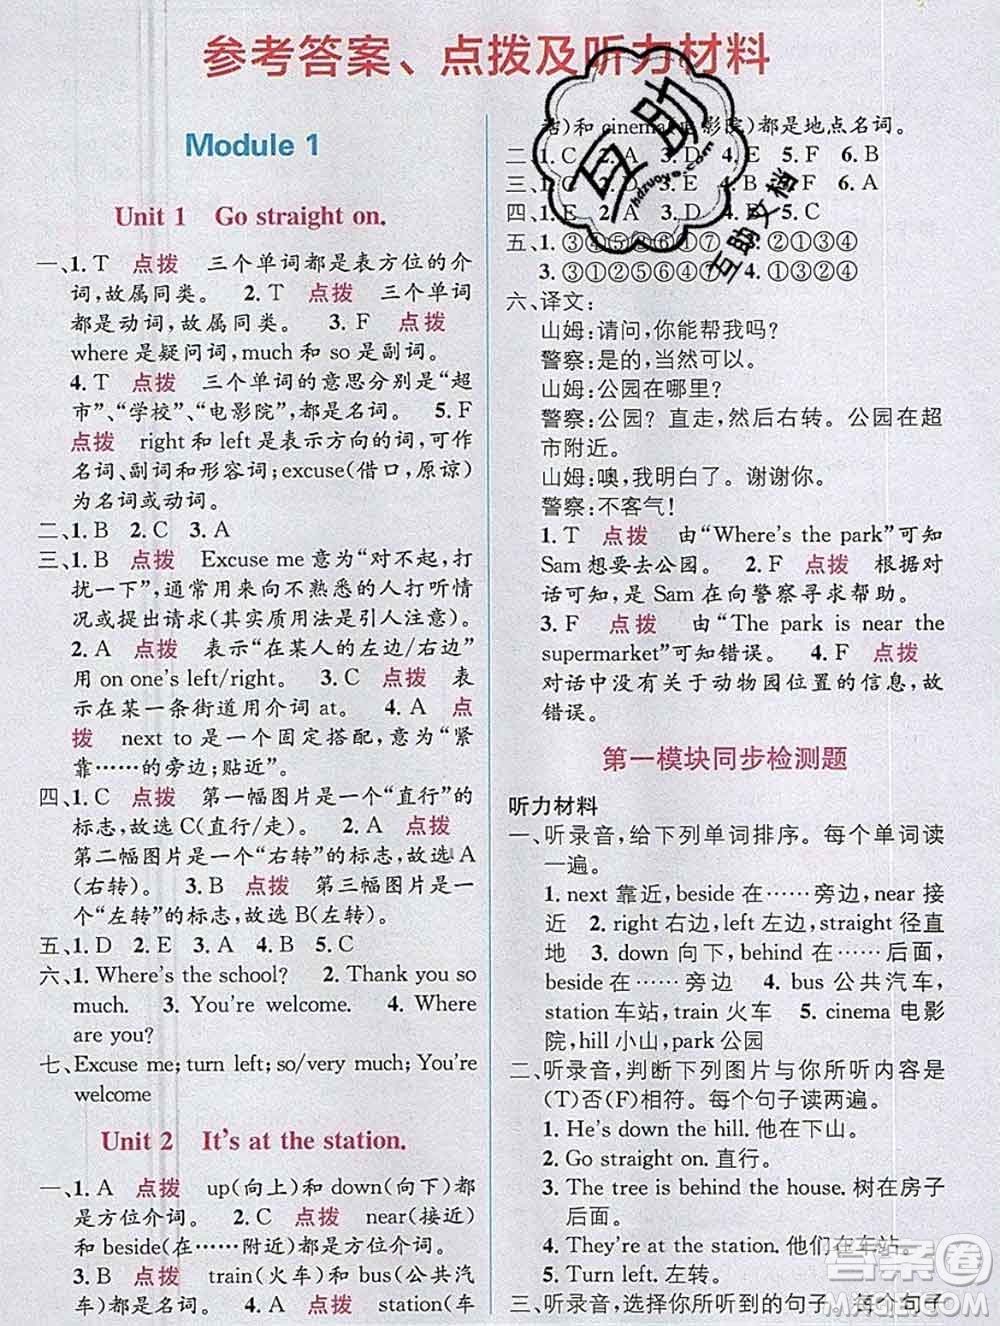 参考答案、点拨及听力材料
Module 1
Unit 1 Go straight on.
一、1. T 点拨 三个单词都是表方位的介
词,故属同类。 2. T 点拨 三个单词
都是动词,故属同类。 3. F 点拨
where 是疑问词, much 和 so 是副词。
4. T 点拨 三个单词的意思分别是“超
市”、“学校”、“电影院”,都是名词。 5. F
点拨 right 和 left 是表示方向的词,可作
名词、副词和形容词; excuse(借口,原谅)
为名词或动词。
二、1. B 2. C 3. A
三、1. B 点拨 Excuse me 意为“对不起,打
扰一下”,通常用来向不熟悉的人打听情
况或提出请求(其实质用法是引人注意)。
2. A 点拨 表示“在某人的左边/右边”
用 on one's left/right。 3. C 点拨 表
示在某一条街道用介词 at。 4. A 点
拨 next to 是一个固定搭配,意为“紧
靠……的旁边;贴近”。
四、1. C 点拨 第一幅图片是个“直行”的
标志,故选 C(直行/走)。 2. A 点拨
第二幅图片是一个“右转”的标志,故选 A
(右转)。 3. B 点拨 第三幅图片是一
个“左转”的标志,故选 B(左转)。
五、1. D 2. E 3. A 4. B 5. C
六、1. Where's the school? 2. Thank you so
much. 3. You're welcome. 4. Where
are you?
七、Excuse me; turn left; so/very much; You're
welcome
Unit 2 It's at the station.
一、1. A 点拨 up(向上)和 down(向下)都
是方位介词。 2. C 点拨 near(接近)
和 beside(在……附近)都是方位介词。
3. B 点拨 train(火车)和 bus(公共汽
车)都是名词。 4. A 点拨 station(车
站)和 cinema(电影院)都是地点名词。
二、1. C 2. A 3. D 4. E 5. F 6. B
三、1. C D B A
四、1. E 2. A 3. D 4. B 5. C
五、1. ③④⑤①⑥⑦ ②①③④
3. ③①②⑤⑥④⑦ 4. ①③②④
六、译文:
山姆:请问,你能帮我吗?
警察:是的,当然可以。
山姆:公园在哪里?
警察:公园? 直走,然后右转。公园在超
市附近。
山姆:噢,我明白了。谢谢你。
警察:不客气!
1. T 点拨 由“Where's the park”可知
Sam 想要去公园。 2. F 点拨 根据对
话可知,是 Sam 在向警察寻求帮助。
3. F 点拨 由“The park is near the
supermarket”可知错误。 4. F 点拨
对话中没有关于动物园位置的信息,故
错误。
第一模块同步检测题
听力材料
一、听录音,给下列单词排序。每个单词读
一遍。
1. next 靠近, beside 在……旁边, near 接
近 2. right 右边, left 左边, straight 径直
地 3. down 向下, behind 在……后面,
beside 在……旁边 4. bus 公共汽车,
station 车站, train 火车 5. cinema 电影
院, hill 小山, park 公园
二、听录音,判断下列图片与你所听内容是
(T)否(F)相符。每个句子读两遍。
1. He's down the hill. 他在下山。
2. Go straight on. 直行。
3. The tree is behind the house. 树在房子
后面。
4. They're at the station. 他们在车站。
5. Turn left. 左转。
三、听录音,选择你所听到的句子。每个句子
互助
hdzuoye.com
互助文档
答案圈